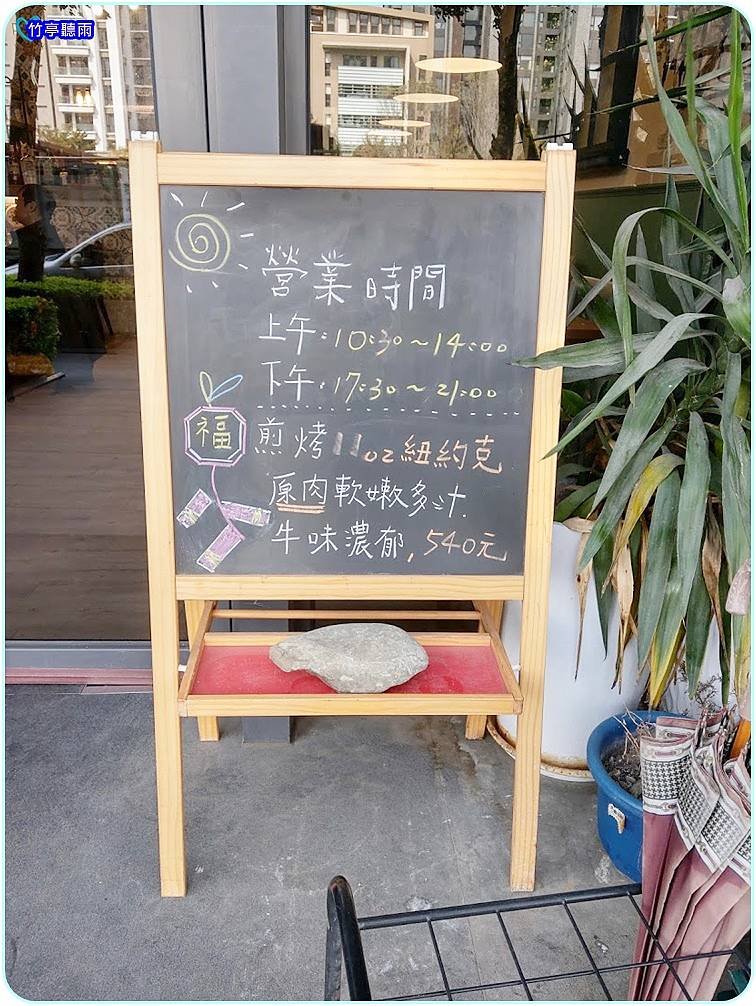 竹亭聽雨
營業時間
上午：10:30～14:00
下午：17:30～21:00
福
煎烤11oz紐約克
原肉軟嫩多汁.
牛味濃郁,540元